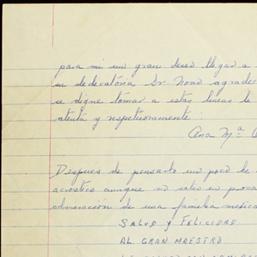 para mi un gran deseo llegar a
su dedicatoria Sr. Noad agradec
se digne tomar a estas lineas le
atenta y respetuosamente:
Ana Mª
Despues de pensarlo un poco
acrostico aunque no sales en prosa
admiración de una familia mexica
SALUD Y FELICIDAD
AL GRAN MAESTRO